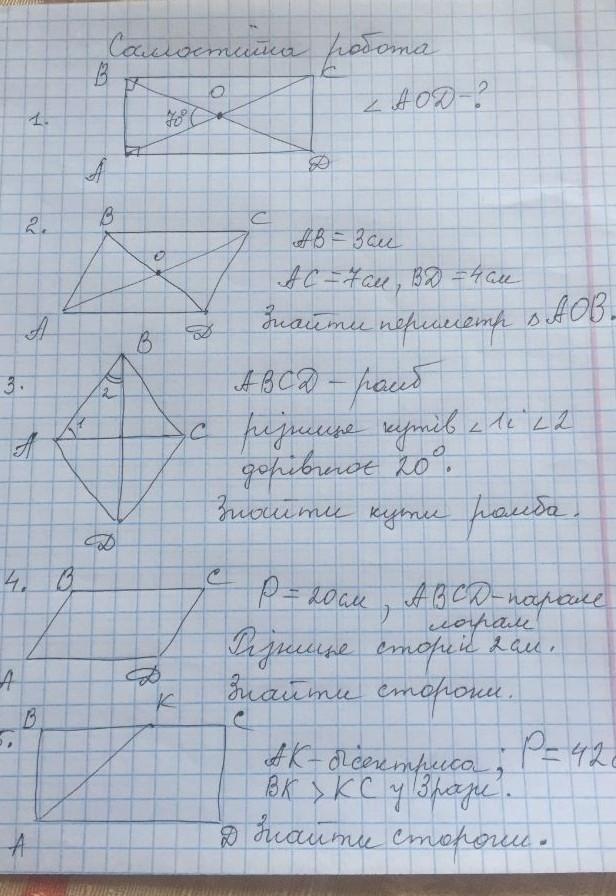 Самостійна робота
1.
B
C
O
78°
A
D
∠AOD-?
2.
B
C
O
A
D
AB = 3см
AC = 7см, BD = 4см
Знайти периметр ΔAOB.
3.
B
2
1
A
C
D
ABCD - ромб
різнице кутів ∠1 і ∠2
дорівнює 20°.
Знайти кути ромба.
4.
B
C
A
D
P = 20см, ABCD-парале
лограм
Різнице сторін 2см.
Знайти сторони.
B
K
C
A
D
AK-бісектриса; P = 42
BK > KC у 3 рази.
Знайти сторони.